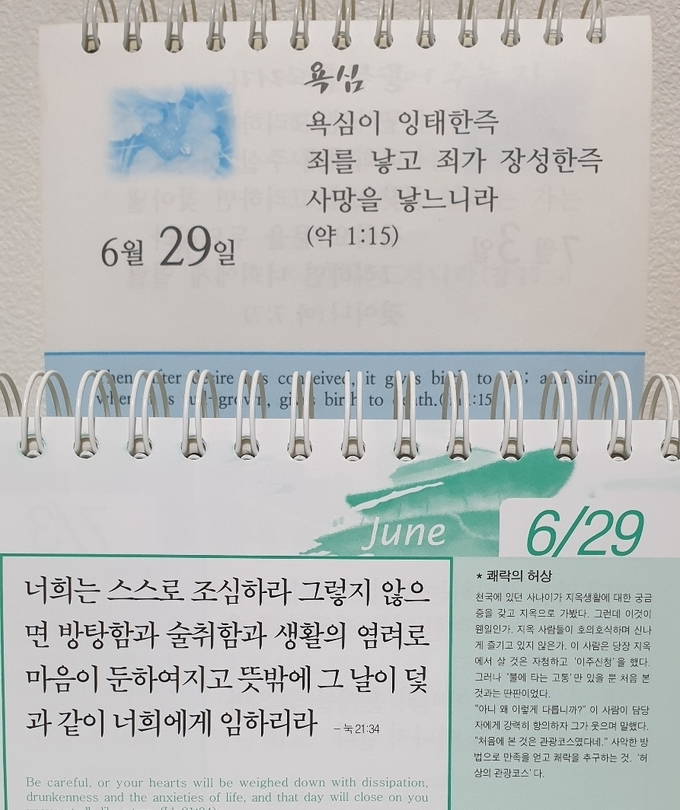 욕심
욕심이 잉태한즉
죄를 낳고 죄가 장성한즉
사망을 낳느니라
(약 1:15)
6월 29일
after desire has conceived, it gives birth to sin; and sin,
when it is full-grown, gives birth to death.
June
6/29
너희는 스스로 조심하라 그렇지 않으
면 방탕함과 술취함과 생활의 염려로
마음이 둔하여지고 뜻밖에 그 날이 덫
과 같이 너희에게 임하리라 – 눅 21:34
Be careful, or your hearts will be weighed down with dissipation,
drunkenness and the anxieties of life, and that day will close on you
* 쾌락의 허상
천국에 있던 사나이가 지옥생활에 대한 궁금
증을 갖고 지옥으로 가봤다. 그런데 이것이
웬일인가. 지옥 사람들이 호의호식하며 신나
게 즐기고 있지 않은가. 이 사람은 당장 지옥
에서 살 것은 자청하고 '이주신청'을 했다.
그러나 '불에 타는 고통'만 있을 뿐 처음 본
것과는 딴판이었다.
"아니 왜 이렇게 다릅니까?" 이 사람이 담당
자에게 강력히 항의하자 그가 웃으며 말했다.
"처음에 본 것은 관광코스였다네." 사악한 방
법으로 만족을 얻고 쾌락을 추구하는 것. '허
상의 관광코스'다.